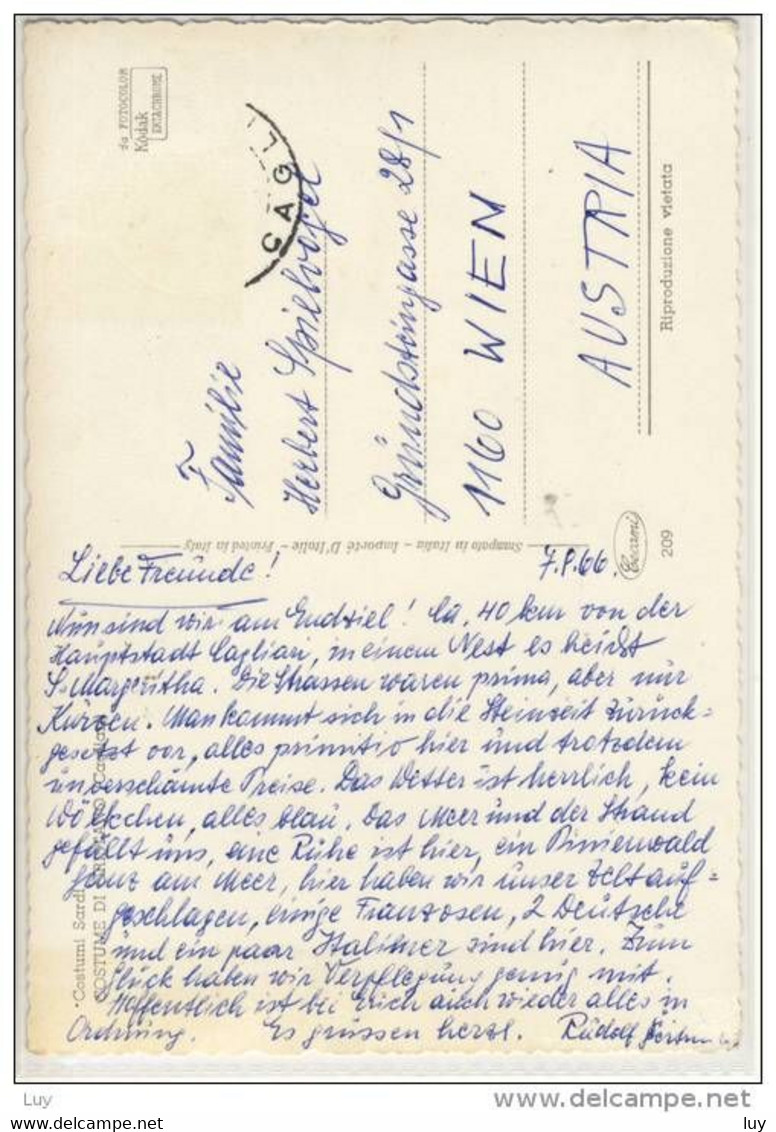 da FOTOCOLOR
Kodak
EKTACHROME
CAGLI
Familie
Herbert Spielvogel
Grundsteingasse 28/1
1160 WIEN
AUSTRIA
Riproduzione vietata
Stampato in Italia - Importé D'Italie - Printed in Italy
209
Costumi Sardi
COSTUME DI
Liebe Freunde! 7.8.66.
Nun sind wir am Endziel! Ca. 40 km von der
Hauptstadt Cagliari, in einem Nest es heißt
S. Margeritha. Die Strassen waren prima, aber nur
Kurven. Man kommt sich in die Steinzeit zurück-
gesetzt vor, alles primitiv hier und trotzdem
unverschämte Preise. Das Wetter ist herrlich, kein
Wölkchen, alles blau. Das Meer und der Strand
gefällt uns, eine Ruhe ist hier, ein Pinienwald
ganz am Meer, hier haben wir unser Zelt auf-
geschlagen, einige Franzosen, 2 Deutsche
und ein paar Italiener sind hier. Zum
Glück haben wir Verpflegung genug mit.
Hoffentlich ist bei Erich auch wieder alles in
Ordnung. Es grüssen herzl. Rudolf
Luy
delcampe.net
Luy luy